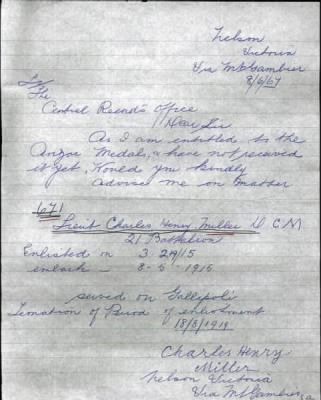 Nelson
Victoria
Via Mt Gambier
8/6/67
To
The
Central Records Office
Dear Sir
As I am entitled to the
Anzac Medals, & have not received
it yet, Would you kindly
advise me on matter
671
Lieut Charles Henry Miller D.C.M
21 Battalion
Enlisted on 3 2 1915
embark - 8-5-1915
served on Gallipoli
Termation of Period of enlistment
18/8/1919
Charles Henry
Miller
Nelson Victoria
Via Mt Gambier